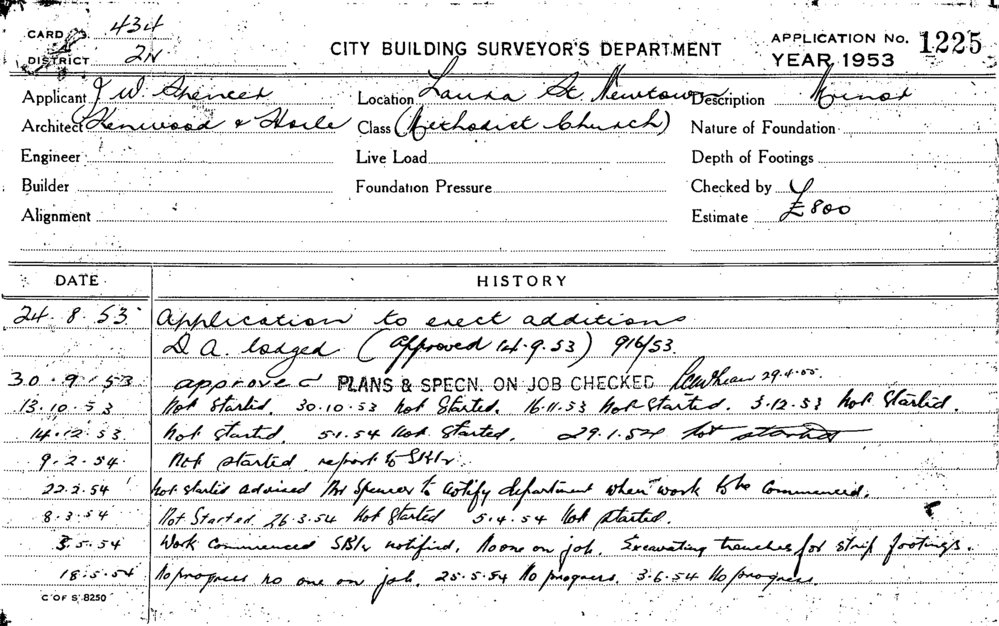 CARD 434
DISTRICT 2N
CITY BUILDING SURVEYOR'S DEPARTMENT
APPLICATION No. 1225
YEAR 1953
Applicant J W. Spencer Location Laura St. Newtown Description Minor
Architect Henwood & Hoile Class (Methodist Church) Nature of Foundation
Engineer Live Load Depth of Footings
Builder Foundation Pressure Checked by
Alignment Estimate £800
DATE HISTORY
24.8.53 Application to erect additions
D A. lodged (Approved 14.9.53) 916/53.
30.9.53 approved PLANS & SPECN. ON JOB CHECKED 29.4.55
13.10.53 Not Started. 30.10.53 Not Started. 16.11.53 Not Started. 3.12.53 Not Started.
14.12.53. Not Started. 5.1.54 Not Started. 29.1.54 Not started
9.2.54. Not started report to
22.2.54 Not started advised Mr Spencer to notify department when work to be commenced.
8.3.54 Not Started 26.3.54 Not Started 5.4.54 Not started.
3.5.54 Work Commenced notified. No one on job. Excavating trenches for strip footings.
18.5.54 No progress no one on job. 25.5.54 No progress. 3.6.54 No progress.
C OF S 8250